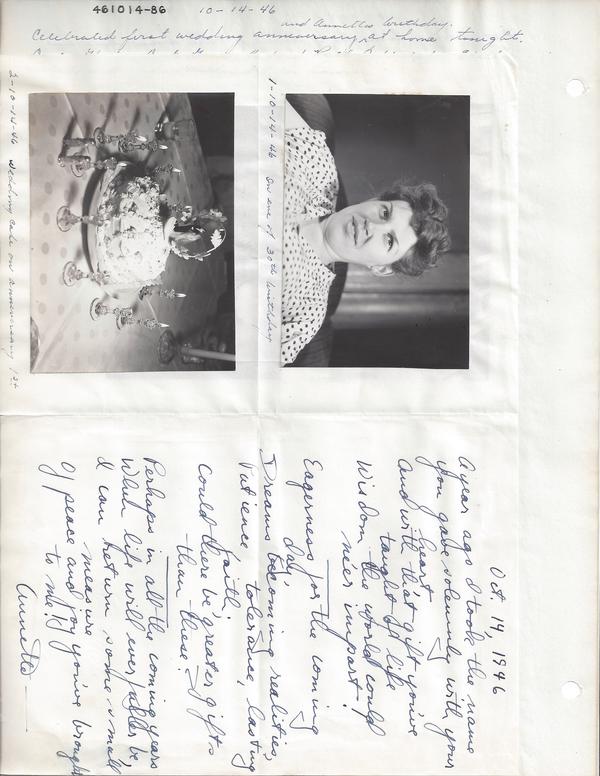 461014-86 10-14-46
and Annettes birthday.
Celebrated first wedding anniversary, at home tonight.
1-10-14-46 On eve of 30th birthday
2-10-14-46 Wedding Cake on anniversary 1st
Oct 14, 1946
A year ago I took the name
you gave solemnly with your
heart
And with that gift you've
taught of life
Wisdom the world could
ne'er impart!
Eagerness for the coming
day
Dreams becoming realities,
Patience, tolerance, lasting
faith,
Could there be greater gifts
than these?
Perhaps in all the coming years
What life will ever be,
I can return some small
measure
Of peace and joy you've brought
to me!
Annette